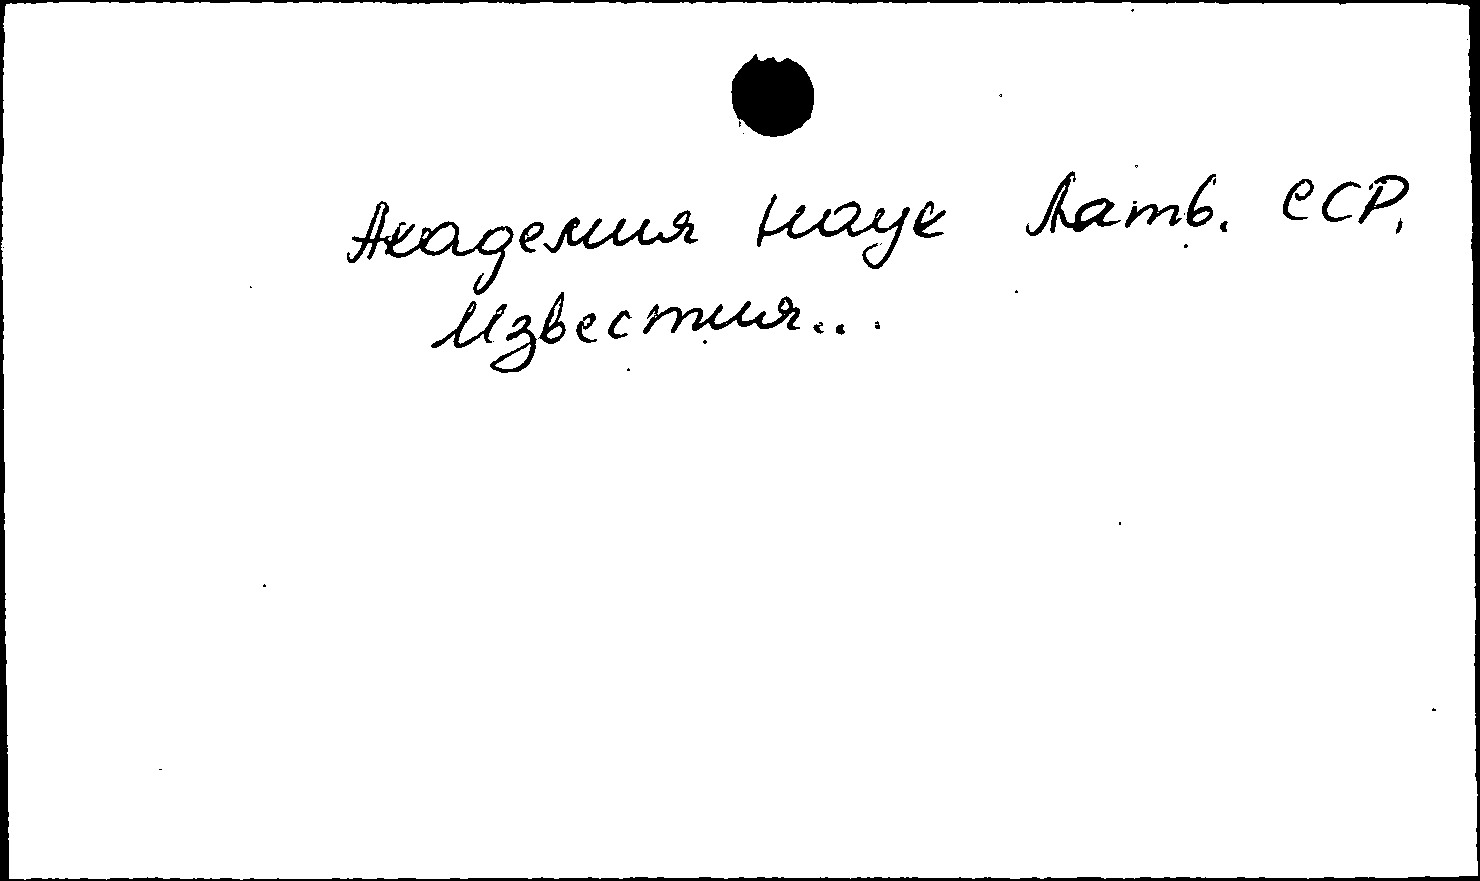 Академия наук Латв. ССР.
Известия...